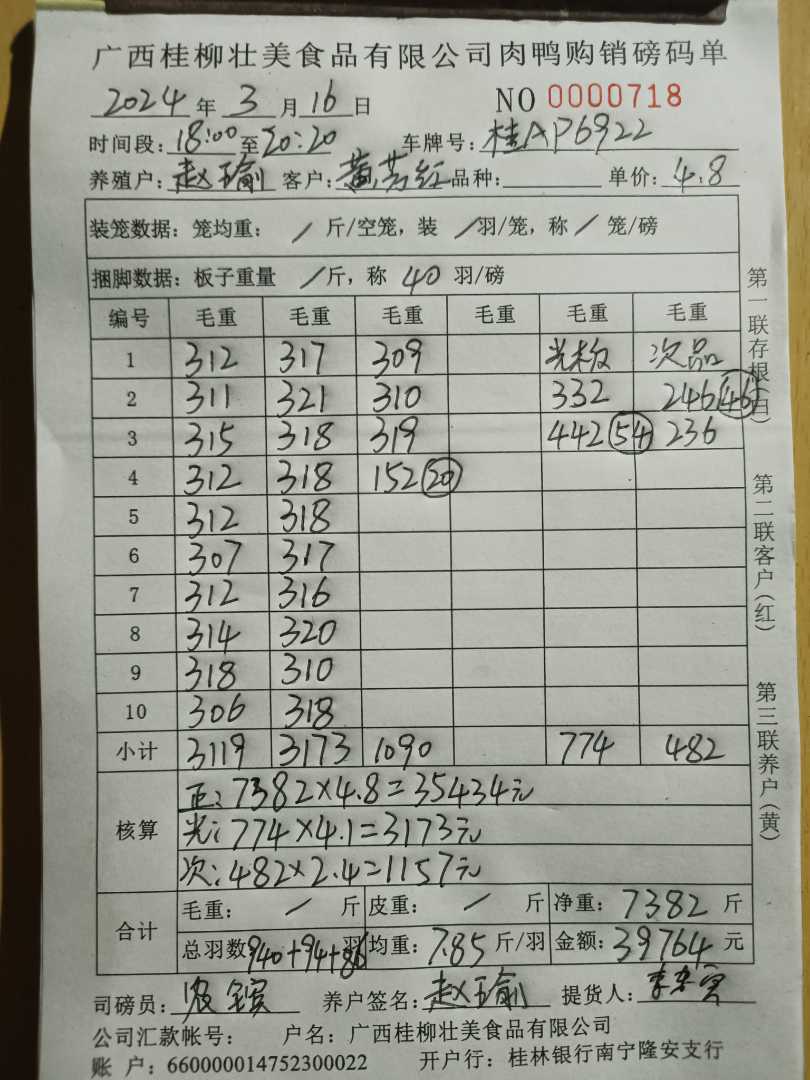 广西桂柳壮美食品有限公司肉鸭购销磅码单
2024 年 3 月 16 日 NO 0000718
时间段: 18:00 至 20:20 车牌号: 桂AP6922
养殖户: 赵瑜 客户: 黄芳红 品种: 单价: 4.8
装笼数据: 笼均重: / 斤/空笼, 装 / 羽/笼, 称 / 笼/磅
捆脚数据: 板子重量 / 斤, 称 40 羽/磅
编号 毛重 毛重 毛重 毛重 毛重 毛重
1 312 317 309 次品
2 311 321 310 332 246 (46)
3 315 318 319 442 (54) 236
4 312 318 152 (20)
5 312 318
6 307 317
7 312 316
8 314 320
9 318 310
10 306 318
小计 3119 3173 1090 774 482
核算 正: 7382×4.8=35434元
光: 774×4.1=3173元
次: 482×2.4=1157元
合计 毛重: / 斤 皮重: / 斤 净重: 7382 斤
总羽数 940+94+86 羽 均重: 7.85 斤/羽 金额: 39764 元
司磅员: 养户签名: 赵瑜 提货人:
公司汇款帐号: 户名: 广西桂柳壮美食品有限公司
账 户: 660000014752300022 开户行: 桂林银行南宁隆安支行
第一联存根(白)
第二联客户(红)
第三联养户(黄)